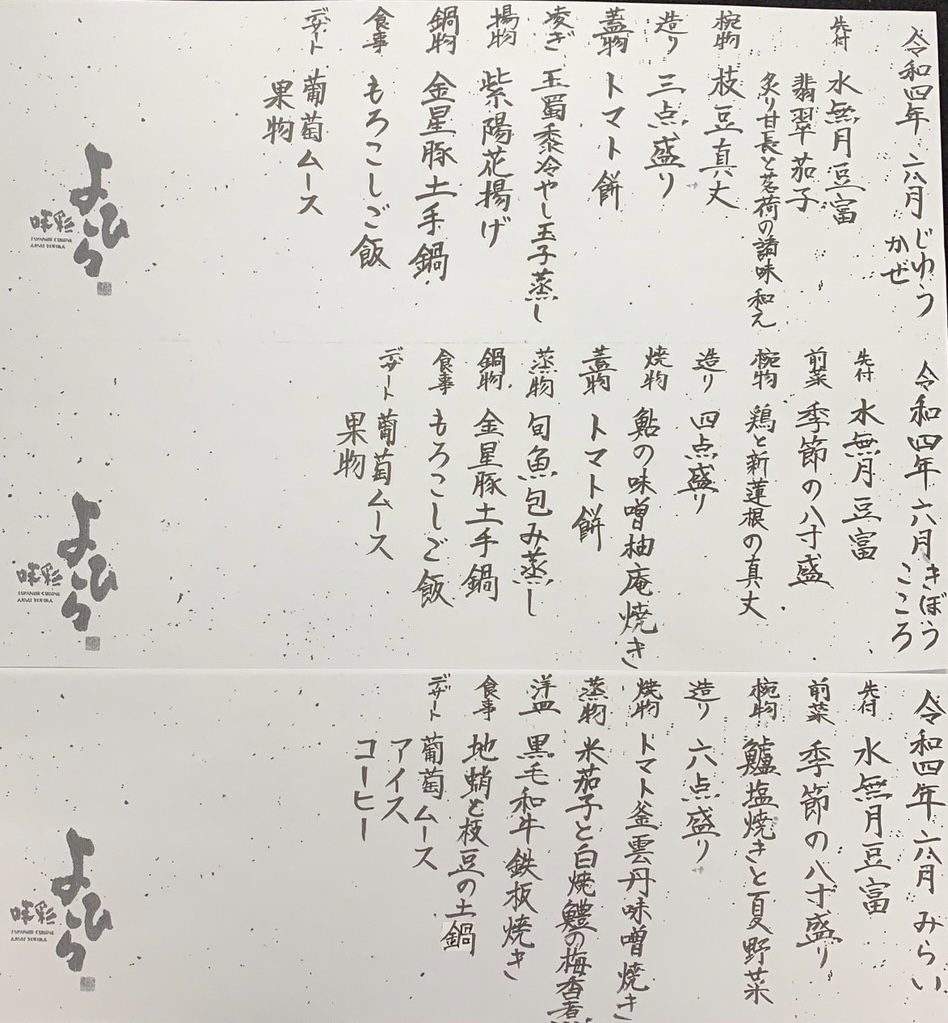 令和四年 六月 じゆう
かぜ
先付 水無月豆富
翡翠茄子
炙り甘長と茗荷の譜味和え
椀物 枝豆真丈
造り 三点盛り
蓋物 トマト餅
凌ぎ 玉蜀黍冷やし玉子蒸し
揚物 紫陽花揚げ
鍋物 金星豚土手鍋
食事 もろこしご飯
デザート 葡萄ムース
果物
味彩和
よひら
令和四年 六月 きぼう
こころ
先付 水無月豆富
前菜 季節の八寸盛
椀物 鶏と新蓮根の真丈
造り 四点盛り
焼物 鮎の味噌柚庵焼き
蓋物 トマト餅
蒸物 旬魚包み蒸し
鍋物 金星豚土手鍋
食事 もろこしご飯
デザート 葡萄ムース
果物
味彩和
よひら
令和四年 六月 みらい
先付 水無月豆富
前菜 季節の八寸盛り
椀物 鱸塩焼きと夏野菜
造り 六点盛り
焼物 トマト釜雲丹味噌焼き
蒸物 米茄子と白焼鱧の梅香蒸
洋皿 黒毛和牛鉄板焼き
食事 地蛸と枝豆の土鍋
デザート 葡萄ムース
アイス
コーヒー
味彩和
よひら